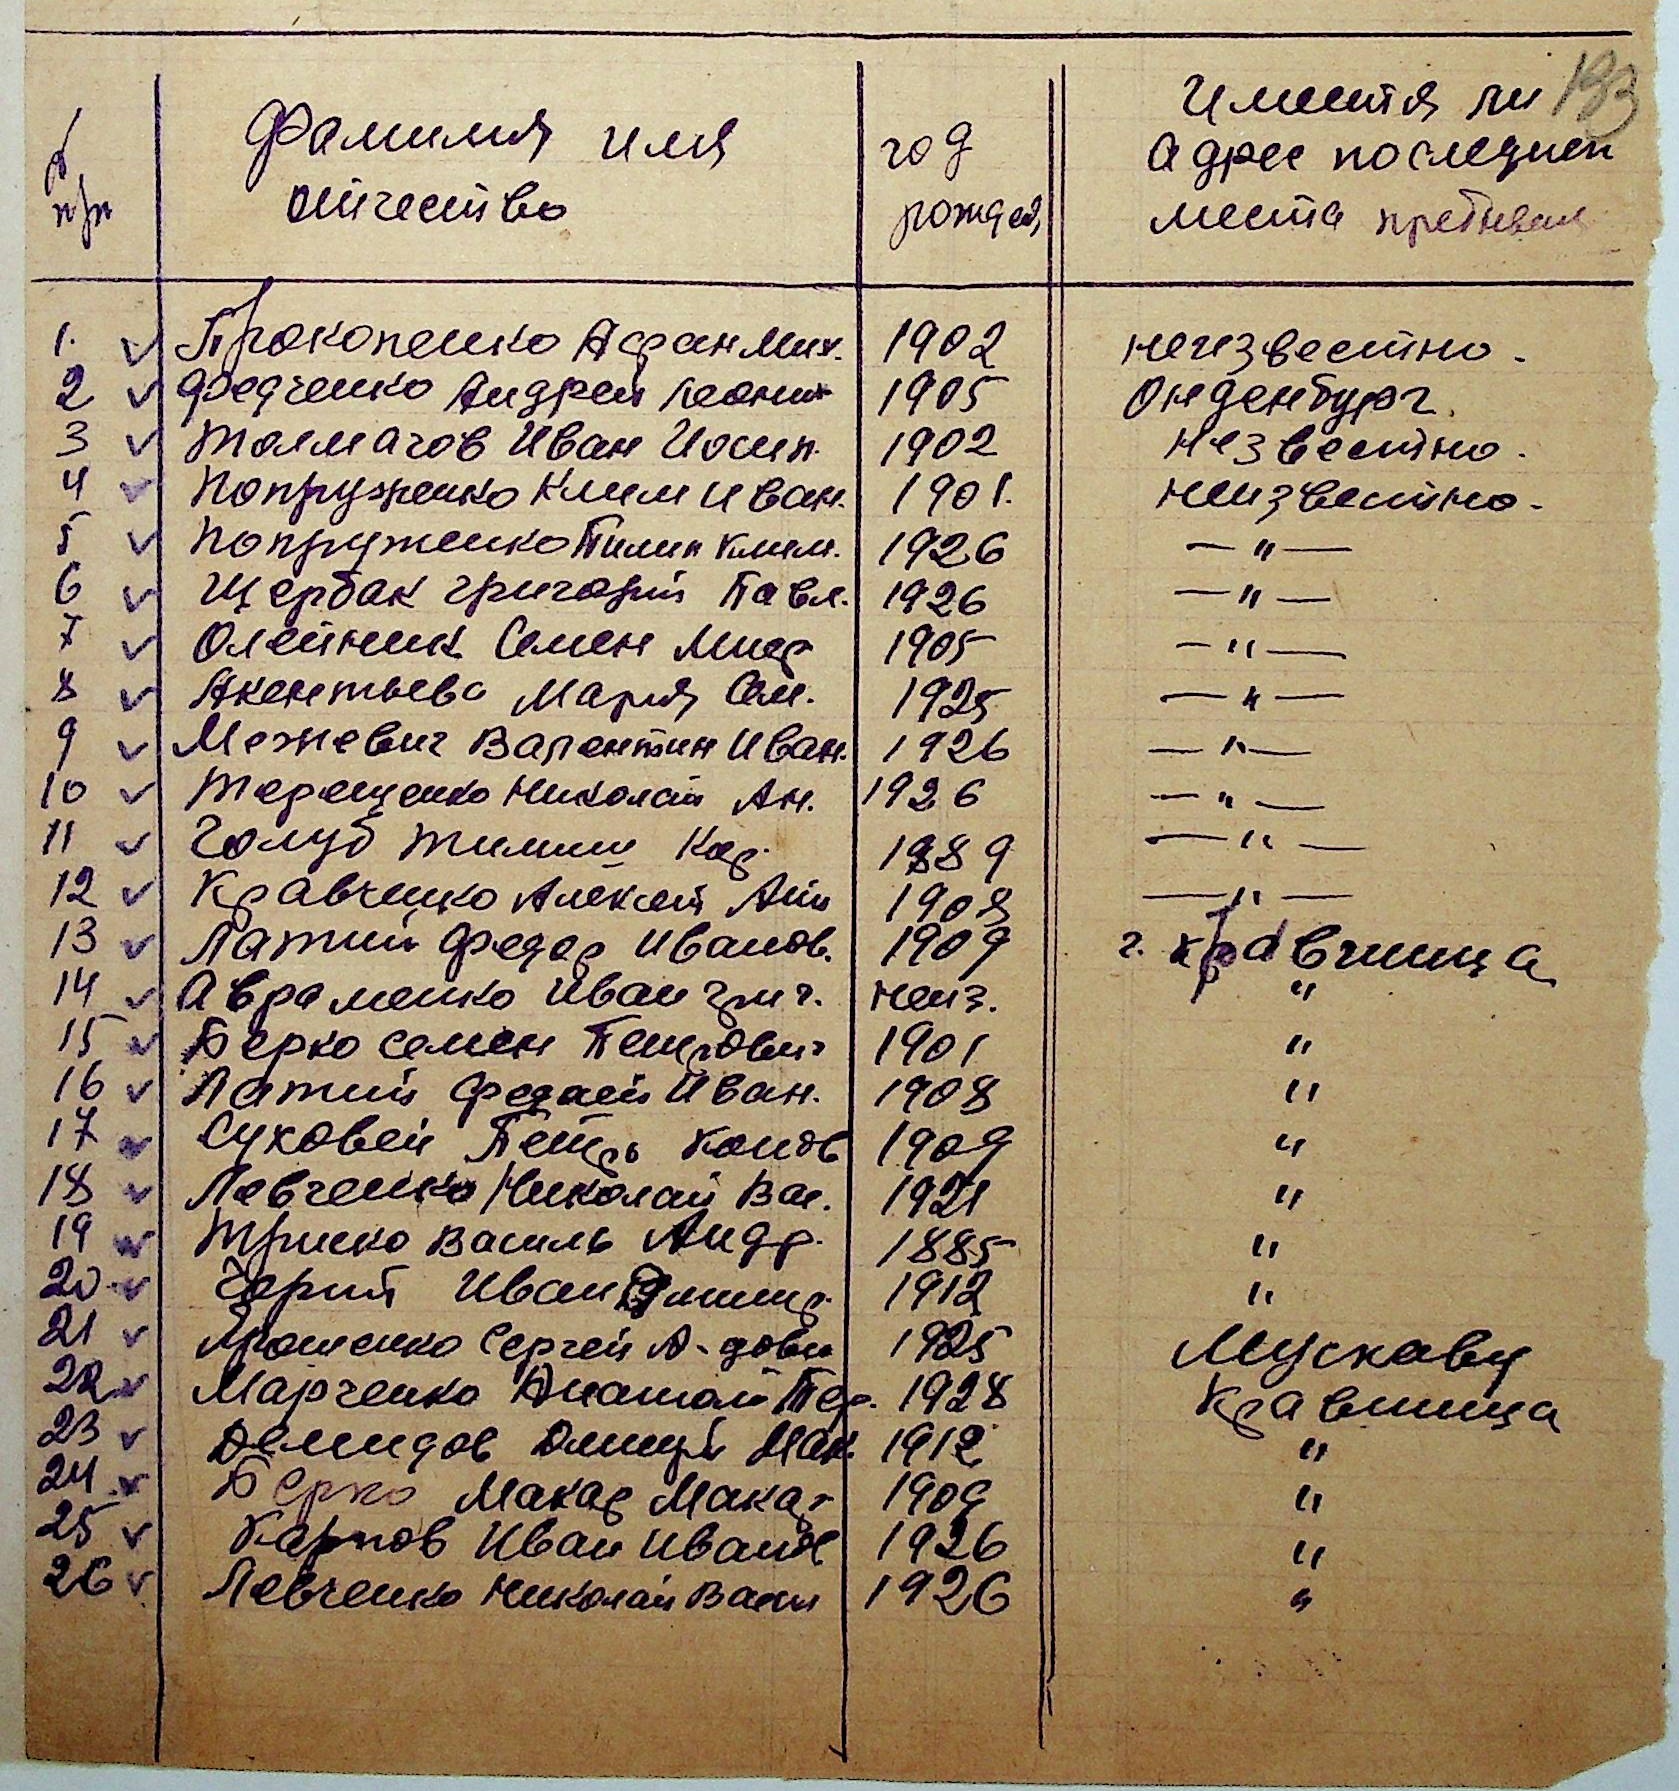 193
№ п/п Фамилия имя отчество год рожден. Имеится ли адрес последнен места пребыван
1. Прокопенко Афан Мих. 1902 неизвестно.
2 Федченко Андрей Леонт 1905 Онденбург.
3 Толмачов Иван Иосип. 1902 незвестно.
4 Попруженко Клим Иван. 1901. неизвестно.
5 Попруженко Пилип Клим. 1926 — " —
6 Щербак Григорий Павл. 1926 — " —
7 Олейник Семен Мид 1905 — " —
8 Акентьева Мария Сем. 1925 — " —
9 Межевич Валентин Иван. 1926 — " —
10 Терещенко Николай Ан. 1926 — " —
11 Голуб Тимиш Кар. 1889 — " —
12 Кравченко Алексей Ант 1908 — " —
13 Латий Федор Иванов. 1909 г. Кравчина
14 Авраменко Иван Григ. неиз. "
15 Берко Семен Петрович 1901 "
16 Латий Федосей Иван. 1908 "
17 Суховей Петрь Конов 1909 "
18 Левченко Николай Вас. 1921 "
19 Триско Василь Андр. 1885 "
20 Чорний Иван Дмитр. 1912 "
21 Ярошенко Сергей А-дови 1925 Мускаву
22 Марченко Анатоли Пер. 1928 Кравчина
23 Демидов Дмитрй Мак. 1912 "
24 Берко Макар Макар 1909 "
25 Карпов Иван Иванов 1926 "
26 Левченко Николай Васил 1926 "